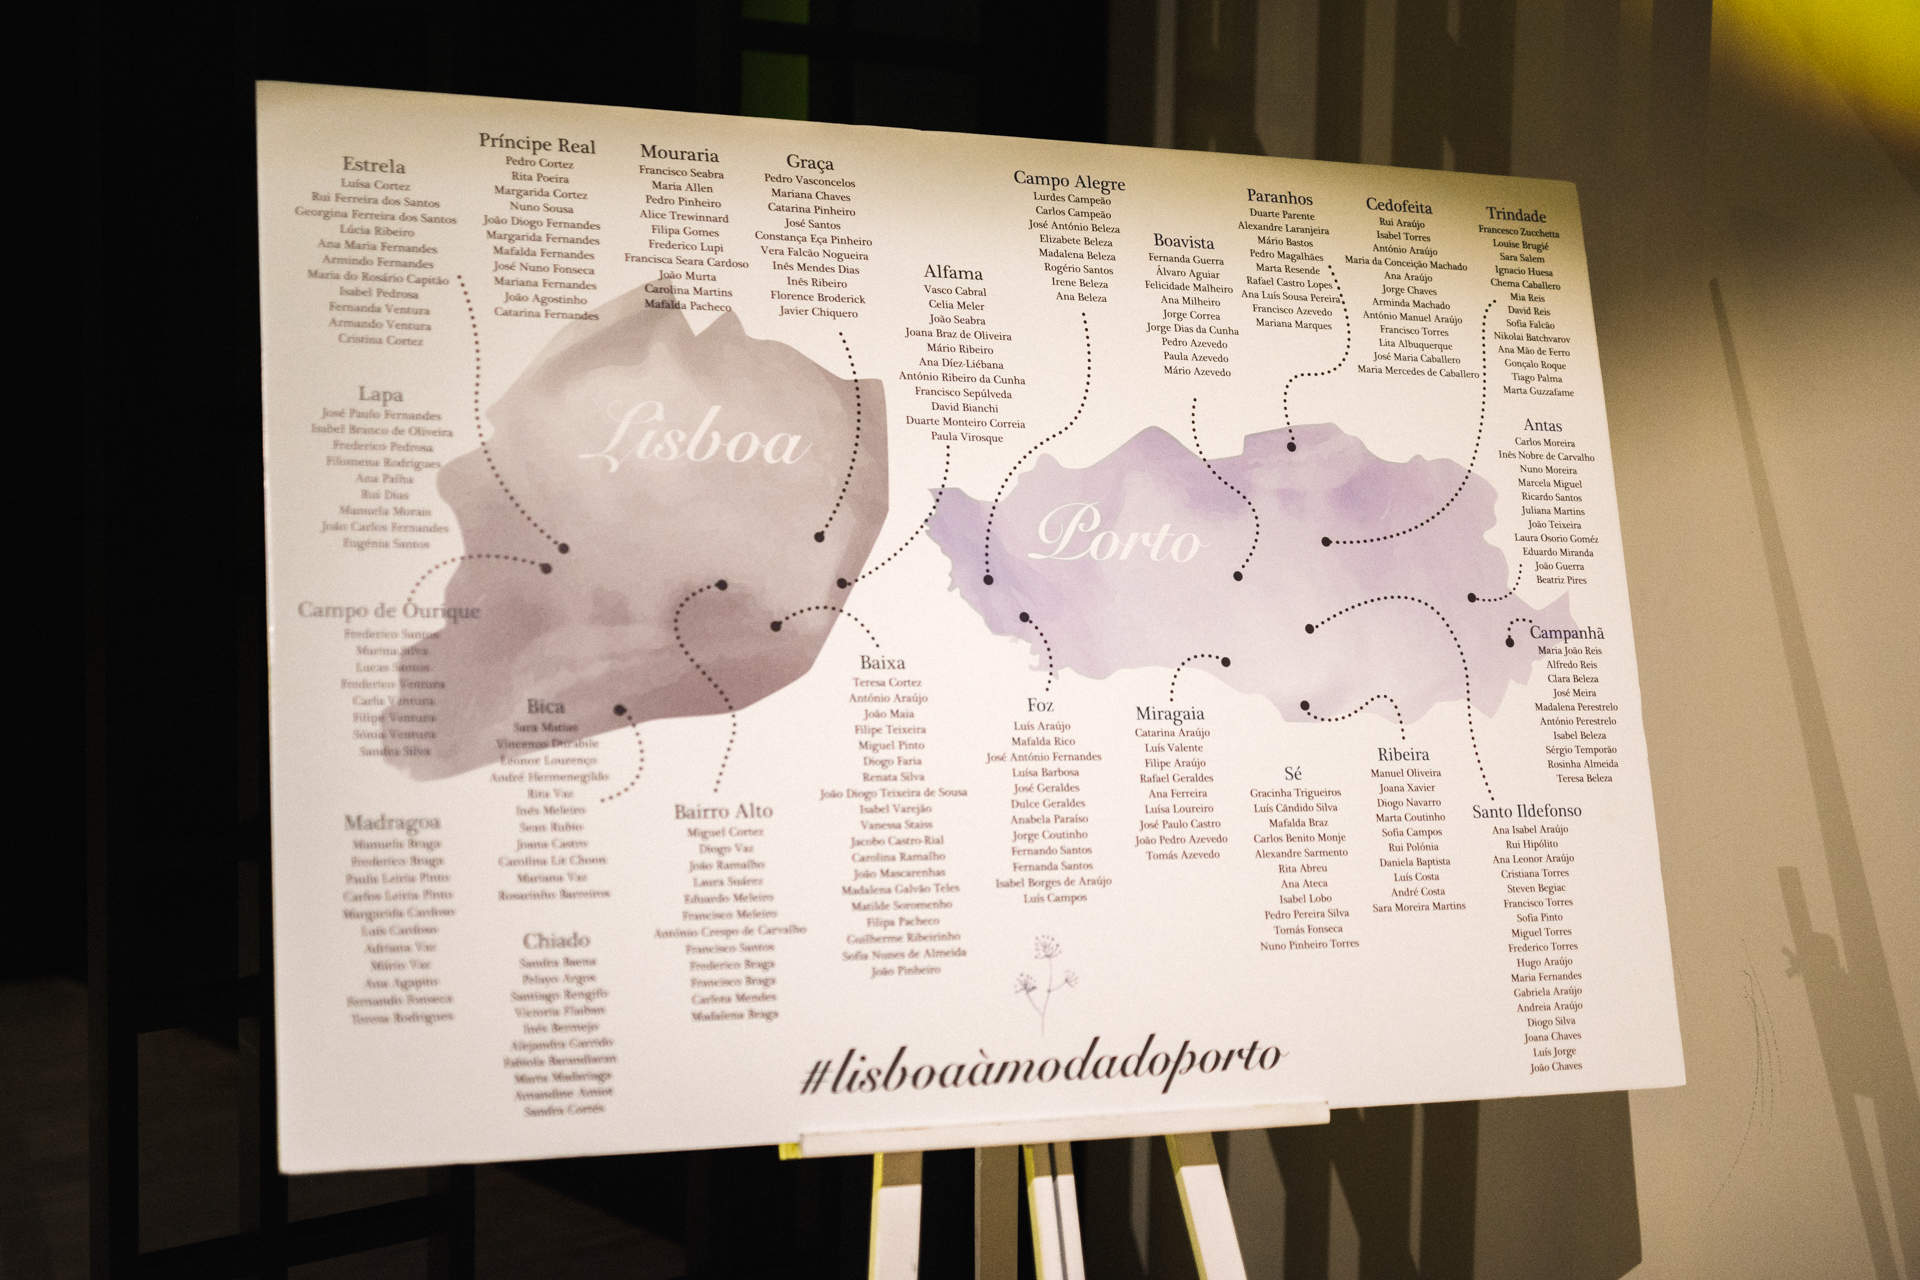 Estrela
Luísa Cortez
Rui Ferreira dos Santos
Georgina Ferreira dos Santos
Lúcia Ribeiro
Ana Maria Fernandes
Armindo Fernandes
Maria do Rosário Capitão
Isabel Pedrosa
Fernanda Ventura
Armando Ventura
Cristina Cortez
Príncipe Real
Pedro Cortez
Rita Poeira
Margarida Cortez
Nuno Sousa
João Diogo Fernandes
Margarida Fernandes
Mafalda Fernandes
José Nuno Fonseca
Mariana Fernandes
João Agostinho
Catarina Fernandes
Mouraria
Francisco Seabra
Maria Allen
Pedro Pinheiro
Alice Trewinnard
Filipa Gomes
Frederico Lupi
Francisca Seara Cardoso
João Murta
Carolina Martins
Mafalda Pacheco
Graça
Pedro Vasconcelos
Mariana Chaves
Catarina Pinheiro
José Santos
Constança Eça Pinheiro
Vera Falcão Nogueira
Inês Mendes Dias
Inês Ribeiro
Florence Broderick
Javier Chiquero
Alfama
Vasco Cabral
Celia Meler
João Seabra
Joana Braz de Oliveira
Mário Ribeiro
Ana Díez-Liébana
António Ribeiro da Cunha
Francisco Sepúlveda
David Bianchi
Duarte Monteiro Correia
Paula Virosque
Campo Alegre
Lurdes Campeão
Carlos Campeão
José António Beleza
Elizabete Beleza
Madalena Beleza
Rogério Santos
Irene Beleza
Ana Beleza
Boavista
Fernanda Guerra
Álvaro Aguiar
Felicidade Malheiro
Ana Milheiro
Jorge Correa
Jorge Dias da Cunha
Pedro Azevedo
Paula Azevedo
Mário Azevedo
Paranhos
Duarte Parente
Alexandre Laranjeira
Mário Bastos
Pedro Magalhães
Marta Resende
Rafael Castro Lopes
Ana Luís Sousa Pereira
Francisco Azevedo
Mariana Marques
Cedofeita
Rui Araújo
Isabel Torres
António Araújo
Maria da Conceição Machado
Ana Araújo
Jorge Chaves
Arminda Machado
António Manuel Araújo
Francisco Torres
Lita Albuquerque
José Maria Caballero
Maria Mercedes de Caballero
Trindade
Francesco Zucchetta
Louise Brugié
Sara Salem
Ignacio Huesa
Chema Caballero
Mia Reis
David Reis
Sofia Falcão
Nikolai Batchvarov
Ana Mão de Ferro
Gonçalo Roque
Tiago Palma
Marta Guzzafame
Lapa
José Paulo Fernandes
Isabel Branco de Oliveira
Frederico Pedrosa
Filomena Rodrigues
Ana Palha
Rui Dias
Manuela Morais
João Carlos Fernandes
Eugénia Santos
Lisboa
Porto
Antas
Carlos Moreira
Inês Nobre de Carvalho
Nuno Moreira
Marcela Miguel
Ricardo Santos
Juliana Martins
João Teixeira
Laura Osorio Goméz
Eduardo Miranda
João Guerra
Beatriz Pires
Campo de Ourique
Frederico Santos
Marina Silva
Lucas Santos
Frederico Ventura
Carla Ventura
Filipe Ventura
Sónia Ventura
Sandra Silva
Bica
Sara Matias
Vincenzo Durabile
Leonor Lourenço
André Hermenegildo
Rita Vaz
Inês Meleiro
Sean Rubio
Joana Castro
Carolina
Mariana Vaz
Rosarinho Barreiros
Madragoa
Manuela Braga
Frederico Braga
Paula Leiria Pinto
Carlos Leiria Pinto
Margarida Cardoso
Luís Cardoso
Adriana Vaz
Mário Vaz
Ana Agapito
Fernando Fonseca
Teresa Rodrigues
Chiado
Sandra Baena
Pelayo Argos
Santiago Rengifo
Victoria
Inés Bermejo
Alejandra Garrido
Marta
Amandine
Sandra Cortés
Bairro Alto
Miguel Cortez
Diogo Vaz
João Ramalho
Laura Suárez
Eduardo Meleiro
Francisco Meleiro
António Crespo de Carvalho
Francisco Santos
Frederico Braga
Francisco Braga
Carlota Mendes
Madalena Braga
Baixa
Teresa Cortez
António Araújo
João Maia
Filipe Teixeira
Miguel Pinto
Diogo Faria
Renata Silva
João Diogo Teixeira de Sousa
Isabel Varejão
Vanessa Staiss
Jacobo Castro-Rial
Carolina Ramalho
João Mascarenhas
Madalena Galvão Teles
Matilde Soromenho
Filipa Pacheco
Guilherme Ribeirinho
Sofia Nunes de Almeida
João Pinheiro
Foz
Luís Araújo
Mafalda Rico
José António Fernandes
Luísa Barbosa
José Geraldes
Dulce Geraldes
Anabela Paraíso
Jorge Coutinho
Fernando Santos
Fernanda Santos
Isabel Borges de Araújo
Luís Campos
Miragaia
Catarina Araújo
Luís Valente
Filipe Araújo
Rafael Geraldes
Ana Ferreira
Luísa Loureiro
José Paulo Castro
João Pedro Azevedo
Tomás Azevedo
Sé
Gracinha Trigueiros
Luís Cândido Silva
Mafalda Braz
Carlos Benito Monje
Alexandre Sarmento
Rita Abreu
Ana Ateca
Isabel Lobo
Pedro Pereira Silva
Tomás Fonseca
Nuno Pinheiro Torres
Ribeira
Manuel Oliveira
Joana Xavier
Diogo Navarro
Marta Coutinho
Sofia Campos
Rui Polónia
Daniela Baptista
Luís Costa
André Costa
Sara Moreira Martins
Campanhã
Maria João Reis
Alfredo Reis
Clara Beleza
José Meira
Madalena Perestrelo
António Perestrelo
Isabel Beleza
Sérgio Temporão
Rosinha Almeida
Teresa Beleza
Santo Ildefonso
Ana Isabel Araújo
Rui Hipólito
Ana Leonor Araújo
Cristiana Torres
Steven Begiac
Francisco Torres
Sofia Pinto
Miguel Torres
Frederico Torres
Hugo Araújo
Maria Fernandes
Gabriela Araújo
Andreia Araújo
Diogo Silva
Joana Chaves
Luís Jorge
João Chaves
#lisboaàmodadoporto